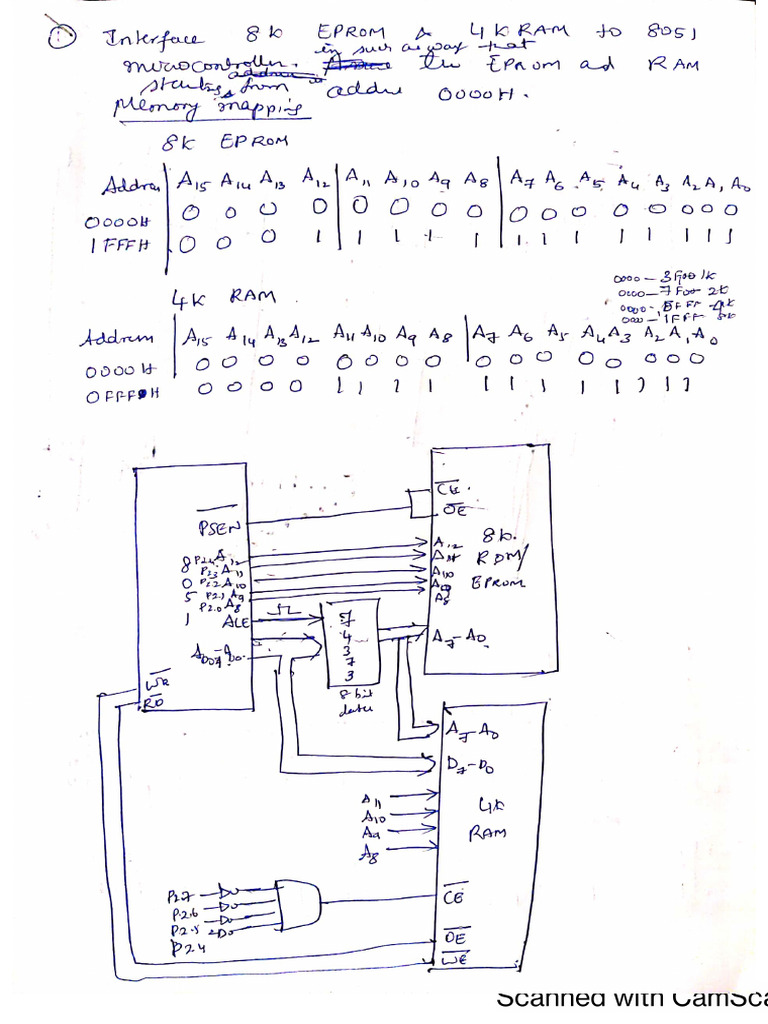 ① Interface 8k EPROM & 4K RAM to 8051
in such a way that
microcontroller. the EPROM ad RAM
starting from addre 0000H.
Memory mapping
8K EPROM
Addren A15 A14 A13 A12 A11 A10 A9 A8 A7 A6 A5 A4 A3 A2 A1 A0
0000H 0 0 0 0 0 0 0 0 0 0 0 0 0 0 0 0
1FFFH 0 0 0 1 1 1 1 1 1 1 1 1 1 1 1 1
0000 — 3F00 1k
0000 — 7F00 2k
0000 — FFF 4k
000 — 1FFF 8k
4K RAM
Addrem A15 A14 A13 A12 A11 A10 A9 A8 A7 A6 A5 A4 A3 A2 A1 A0
0000H 0 0 0 0 0 0 0 0 0 0 0 0 0 0 0 0
0FFFH 0 0 0 0 1 1 1 1 1 1 1 1 1 1 1 1
PSEN
8051
P2.4 A12
P2.3 A11
P2.2 A10
P2.1 A9
P2.0 A8
ALE
AD7-AD0
WR
RD
74373
8-bit
CE
OE
A12
A11
A10
A9
A8
A7-A0
8k
ROM/
EPROM
A7-A0
D7-D0
A11
A10
A9
A8
4k
RAM
P2.7
P2.6
P2.5
P2.4
CE
OE
WE
Scanned with CamSca